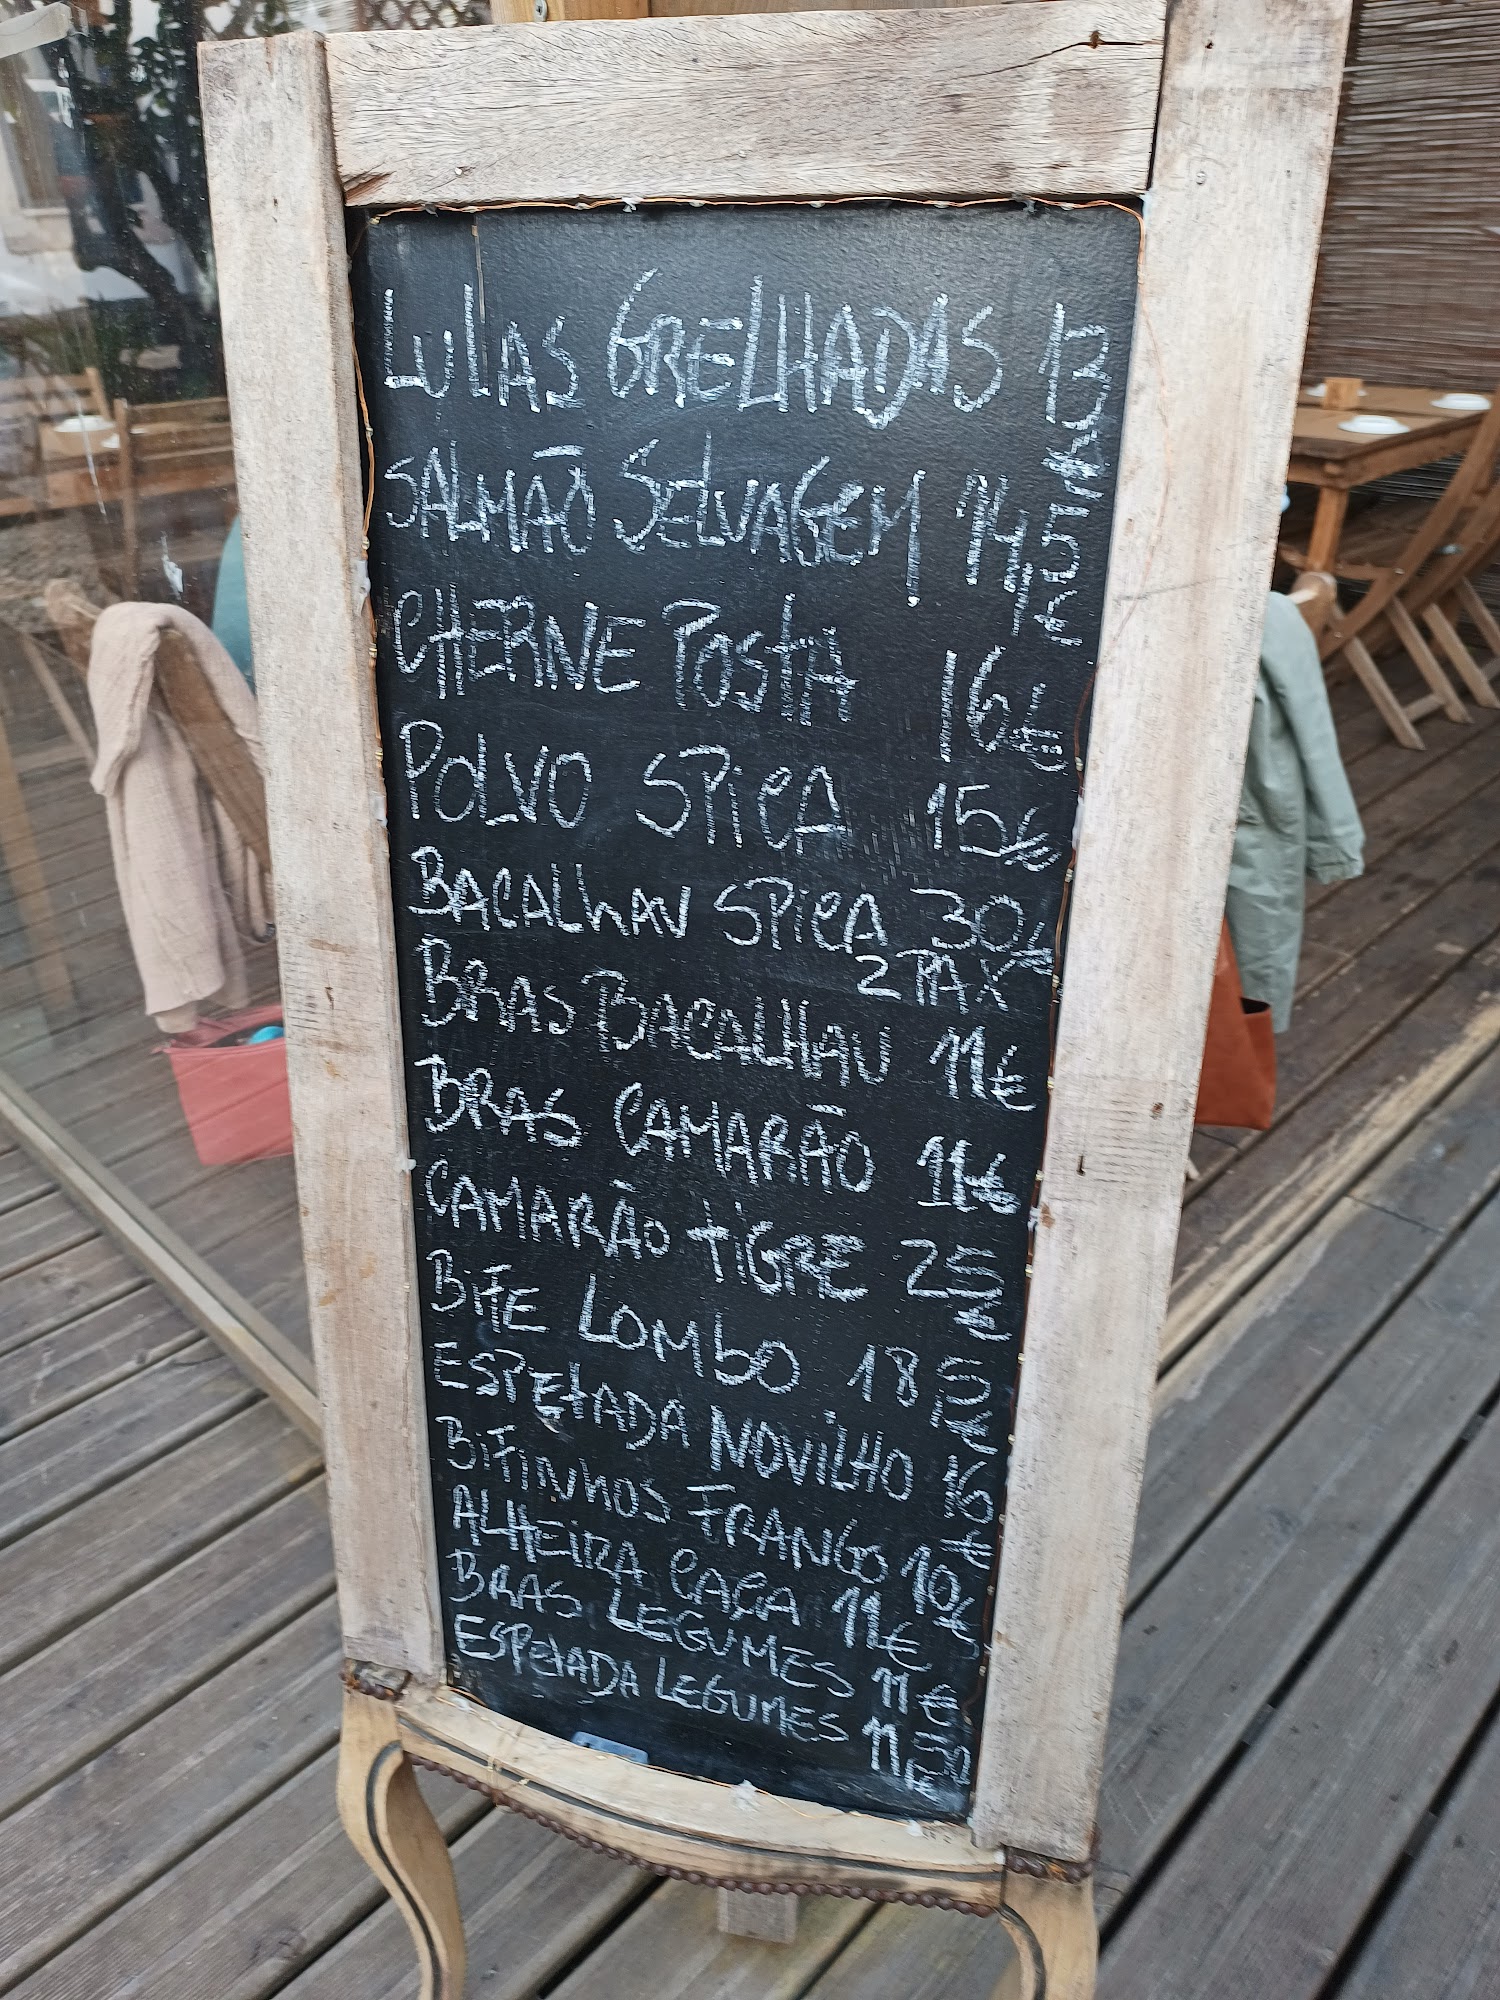 LULAS GRELHADAS 13€
SALMÃO SELVAGEM 14,5€
CHERNE POSTA 16€
POLVO SPICA 15€
BACALHAU SPICA 30€
2 PAX
BRAS BACALHAU 11€
BRAS CAMARÃO 11€
CAMARÃO TIGRE 25€
BIFE LOMBO 18 5€
ESPETADA NOVILHO 16€
BIFINHOS FRANGO 10€
ALHEIRA CAÇA 11€
BRAS LEGUMES 11€
ESPETADA LEGUMES 11 50€